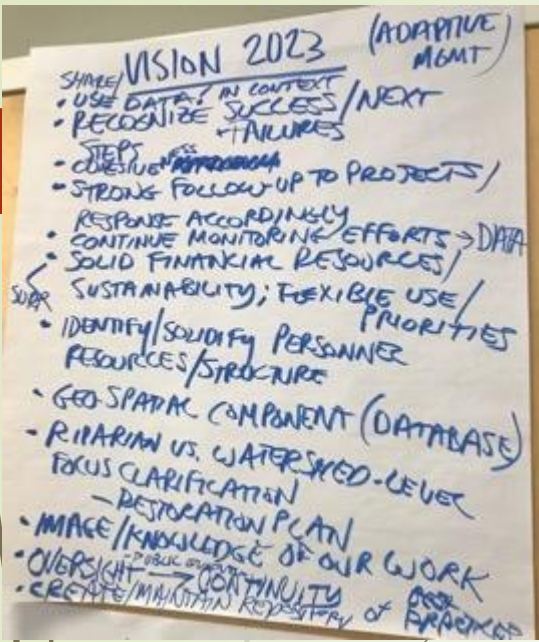 VISION 2023 (ADAPTIVE MGMT)
SHARE/
• USE DATA! IN CONTEXT
• RECOGNIZE SUCCESS/NEXT
+FAILURES
STEPS
• COHESIVENESS
• STRONG FOLLOW-UP TO PROJECTS/
RESPONSE ACCORDINGLY
• CONTINUE MONITORING EFFORTS → DATA
• SOLID FINANCIAL RESOURCES/
SUSTAINABILITY; FLEXIBLE USE/
PRIORITIES
• IDENTIFY/SOLIDIFY PERSONNEL
RESOURCES/STRUCTURE
• GEO-SPATIAL COMPONENT (DATABASE)
• RIPARIAN VS. WATERSHED-LEVEL
FOCUS CLARIFICATION
– RESTORATION PLAN
• IMAGE/KNOWLEDGE OF OUR WORK
• OVERSIGHT → CONTINUITY
• CREATE/MAINTAIN REPOSITORY of BEST
PRACTICES